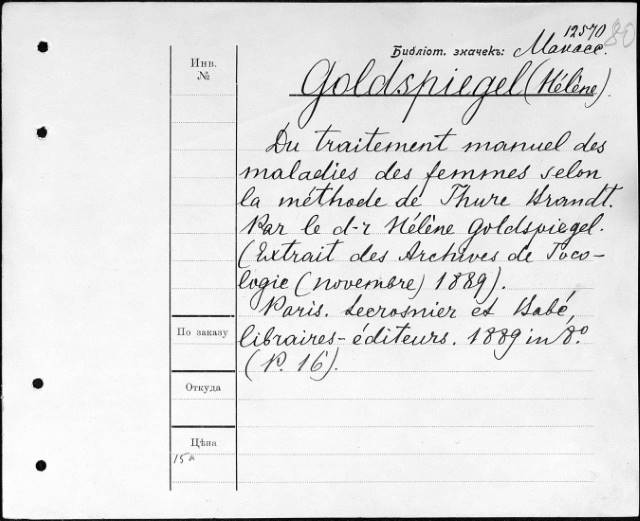 12570 80
Библіот. значекъ: Манасс.
Инв.
№
Goldspiegel (Hélène).
Du traitement manuel des
maladies des femmes selon
la méthode de Thure Brandt.
Par le d-r Hélène Goldspiegel.
(Extrait des Archives de Toco-
logie (novembre) 1889).
Paris. Lecrosnier et Babé,
По заказу
libraires-éditeurs. 1889 in 8.º
(P. 16).
Откуда
Цѣна